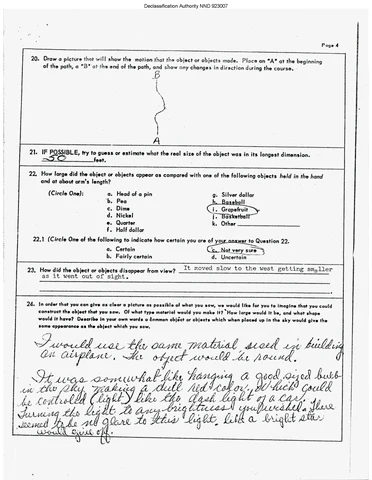 Declassification Authority NND 923007
Page 4
20. Draw a picture that will show the motion that the object or objects made. Place an "A" at the beginning
of the path, a "B" at the end of the path, and show any changes in direction during the course.
B
A
21. IF POSSIBLE, try to guess or estimate what the real size of the object was in its longest dimension.
50 feet.
22. How large did the object or objects appear as compared with one of the following objects held in the hand
and at about arm's length?
(Circle One): a. Head of a pin g. Silver dollar
b. Pea h. Baseball
c. Dime i. Grapefruit
d. Nickel j. Basketball
e. Quarter k. Other
f. Half dollar
22.1 (Circle One of the following to indicate how certain you are of your answer to Question 22.
a. Certain c. Not very sure
b. Fairly certain d. Uncertain
23. How did the object or objects disappear from view? It moved slow to the west getting smaller
as it went out of sight.
24. In order that you can give as clear a picture as possible of what you saw, we would like for you to imagine that you could
construct the object that you saw. Of what type material would you make it? How large would it be, and what shape
would it have? Describe in your own words a common object or objects which when placed up in the sky would give the
same appearance as the object which you saw.
I would use the same material used in building
an airplane. The object would be round.
It was somewhat like hanging a good sized bulb
in the sky making a dull red color, which could
be controlled (light) like the dash light of a car.
Turning the light to any brightness you wished. There
seemed to be no glare to this light, like a bright star
would give off.